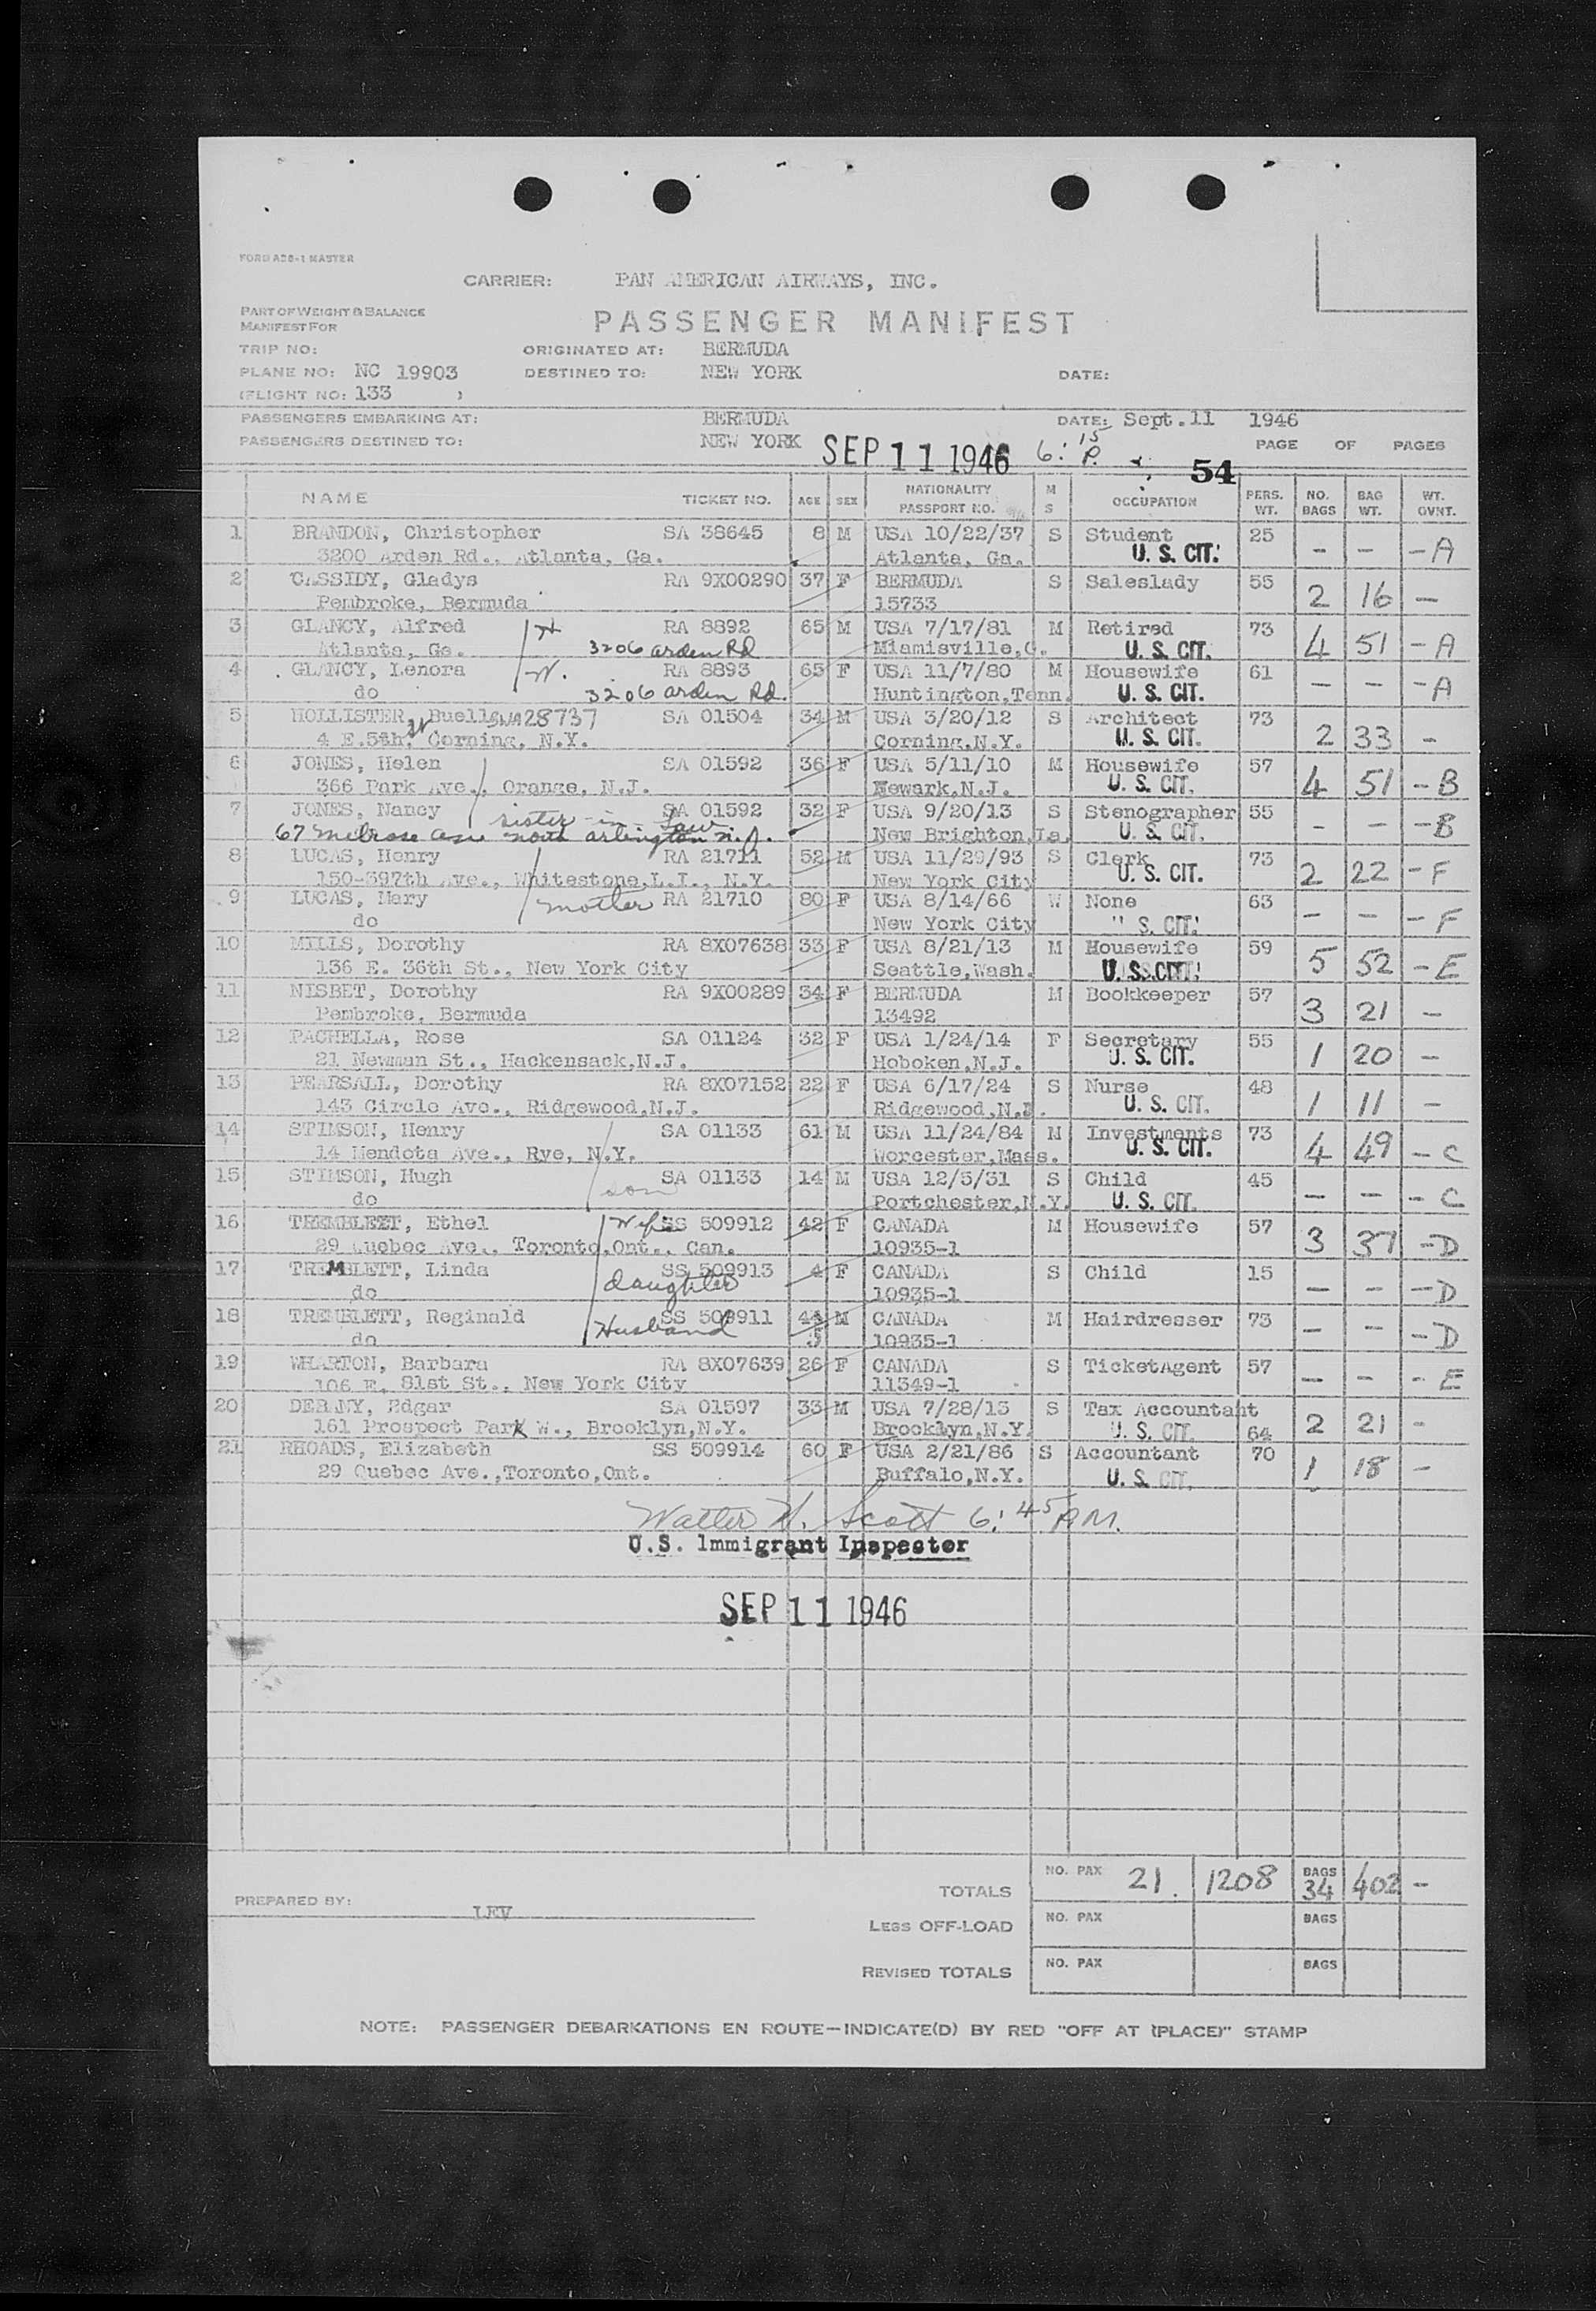 FORM ADS-1 MASTER
CARRIER: PAN AMERICAN AIRWAYS, INC.
PART OF WEIGHT & BALANCE
MANIFEST FOR
PASSENGER MANIFEST
TRIP NO: ORIGINATED AT: BERMUDA
PLANE NO: NC 19903 DESTINED TO: NEW YORK DATE:
(FLIGHT NO: 133 )
PASSENGERS EMBARKING AT: BERMUDA DATE: Sept. 11 1946
PASSENGERS DESTINED TO: NEW YORK SEP 11 1946 6:15 P. PAGE OF PAGES
54
NAME TICKET NO. AGE SEX NATIONALITY PASSPORT NO. M S OCCUPATION PERS. WT. NO. BAGS BAG WT. WT. OVNT.
1 BRANDON, Christopher SA 38645 8 M USA 10/22/37 S Student 25
3200 Arden Rd., Atlanta, Ga. Atlanta, Ga. U. S. CIT. - - - A
2 CASSIDY, Gladys RA 9X00290 37 F BERMUDA S Saleslady 55
Pembroke, Bermuda 15733 2 16 -
3 GLANCY, Alfred H RA 8892 65 M USA 7/17/81 M Retired 73
Atlanta, Ga. 3206 Arden Rd Miamisville, O. U. S. CIT. 4 51 - A
4 GLANCY, Lenora W. RA 8893 65 F USA 11/7/80 M Housewife 61
do 3206 Arden Rd. Huntington, Tenn. U. S. CIT. - - - A
5 HOLLISTER, Buell 28737 SA 01504 34 M USA 3/20/12 S Architect 73
4 E.5th, St Corning, N.Y. Corning, N.Y. U. S. CIT. 2 33 -
6 JONES, Helen SA 01592 36 F USA 5/11/10 M Housewife 57
366 Park Ave., Orange, N.J. Newark, N.J. U. S. CIT. 4 51 - B
7 JONES, Nancy sister-in-law SA 01592 32 F USA 9/20/13 S Stenographer 55
67 Melrose Ave North Arlington N.J. New Brighton, La. U. S. CIT. - - - B
8 LUCAS, Henry RA 21711 52 M USA 11/29/93 S Clerk 73
150-397th Ave., Whitestone, L.I., N.Y. New York City U. S. CIT. 2 22 - F
9 LUCAS, Mary mother RA 21710 80 F USA 8/14/66 W None 63
do New York City " S. CIT. - - - F
10 MILLS, Dorothy RA 8X07638 33 F USA 8/21/13 M Housewife 59
136 E. 36th St., New York City Seattle, Wash. U. S. CIT. 5 52 - E
11 NISBET, Dorothy RA 9X00289 34 F BERMUDA M Bookkeeper 57
Pembroke, Bermuda 13492 3 21 -
12 PACHELLA, Rose SA 01124 32 F USA 1/24/14 F Secretary 55
21 Newman St., Hackensack, N.J. Hoboken, N.J. U. S. CIT. 1 20 -
13 PEARSALL, Dorothy RA 8X07152 22 F USA 6/17/24 S Nurse 48
143 Circle Ave., Ridgewood, N.J. Ridgewood, N.J. U. S. CIT. 1 11 -
14 STIMSON, Henry SA 01133 61 M USA 11/24/84 M Investments 73
14 Mendota Ave., Rye, N.Y. Worcester, Mass. U. S. CIT. 4 49 - C
15 STIMSON, Hugh son SA 01133 14 M USA 12/5/31 S Child 45
do Portchester, N.Y. U. S. CIT. - - - C
16 TREMBLETT, Ethel Wife SS 509912 42 F CANADA M Housewife 57
29 Quebec Ave., Toronto, Ont., Can. 10935-1 3 37 - D
17 TREMBLETT, Linda daughter SS 509913 4 F CANADA S Child 15
do 10935-1 - - - D
18 TREMBLETT, Reginald Husband SS 509911 44 M CANADA M Hairdresser 73
do 5 10935-1 - - - D
19 WHARTON, Barbara RA 8X07639 26 F CANADA S TicketAgent 57
106 E. 81st St., New York City 11349-1 - - - E
20 Edgar SA 01597 33 M USA 7/28/13 S Tax Accountant
161 Prospect Park W., Brooklyn, N.Y. Brooklyn, N.Y. U. S. CIT. 64 2 21 -
21 RHOADS, Elizabeth SS 509914 60 F USA 2/21/86 S Accountant 70
29 Quebec Ave., Toronto, Ont. Buffalo, N.Y. U. S. CIT. 1 18 -
Walter H. Scott 6:45 P.M.
U.S. Immigrant Inspector
SEP 11 1946
TOTALS NO. PAX 21. 1208 BAGS 34 402 -
PREPARED BY: LEV
LESS OFF-LOAD NO. PAX BAGS
REVISED TOTALS NO. PAX BAGS
NOTE: PASSENGER DEBARKATIONS EN ROUTE—INDICATE(D) BY RED "OFF AT (PLACE)" STAMP